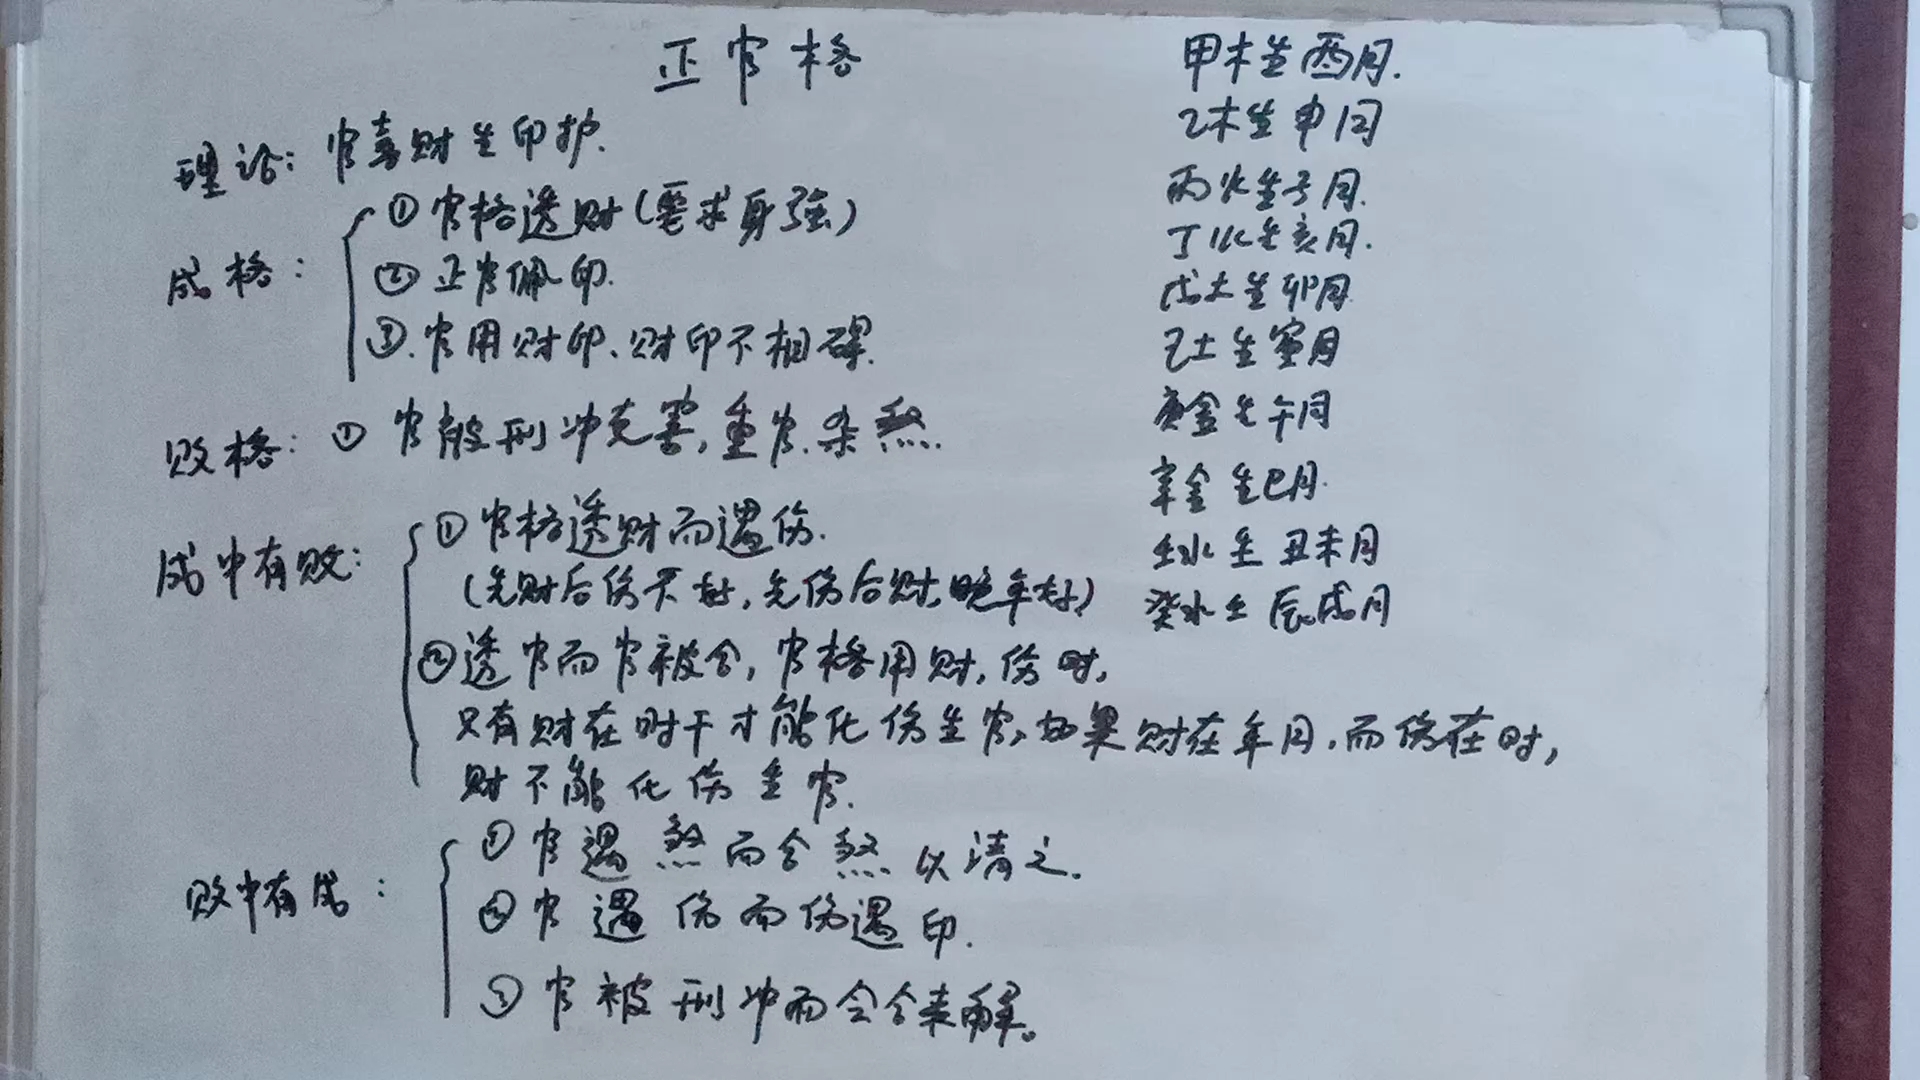 正官格
理论：官喜财生印护.
成格：①官格透财(要求身强)
②正官佩印.
③.官用财印、财印不相碍.
败格：①官被刑冲克害,重官.杂煞.
成中有败：①官格透财而遇伤.
(先财后伤不好,先伤后财,晚年好)
②透官而官被合,官格用财,伤时,
只有财在时干才能化伤生官,如果财在年月.而伤在时,
财不能化伤生官.
败中有成：①官遇煞而合煞以清之.
②官遇伤而伤遇印.
③官被刑冲而会合来解。
甲木生酉月.
乙木生申月
丙火生子月.
丁火生亥月.
戊土生卯月
己土生寅月
庚金生午月
辛金生巳月.
壬水生丑未月
癸水生辰戌月